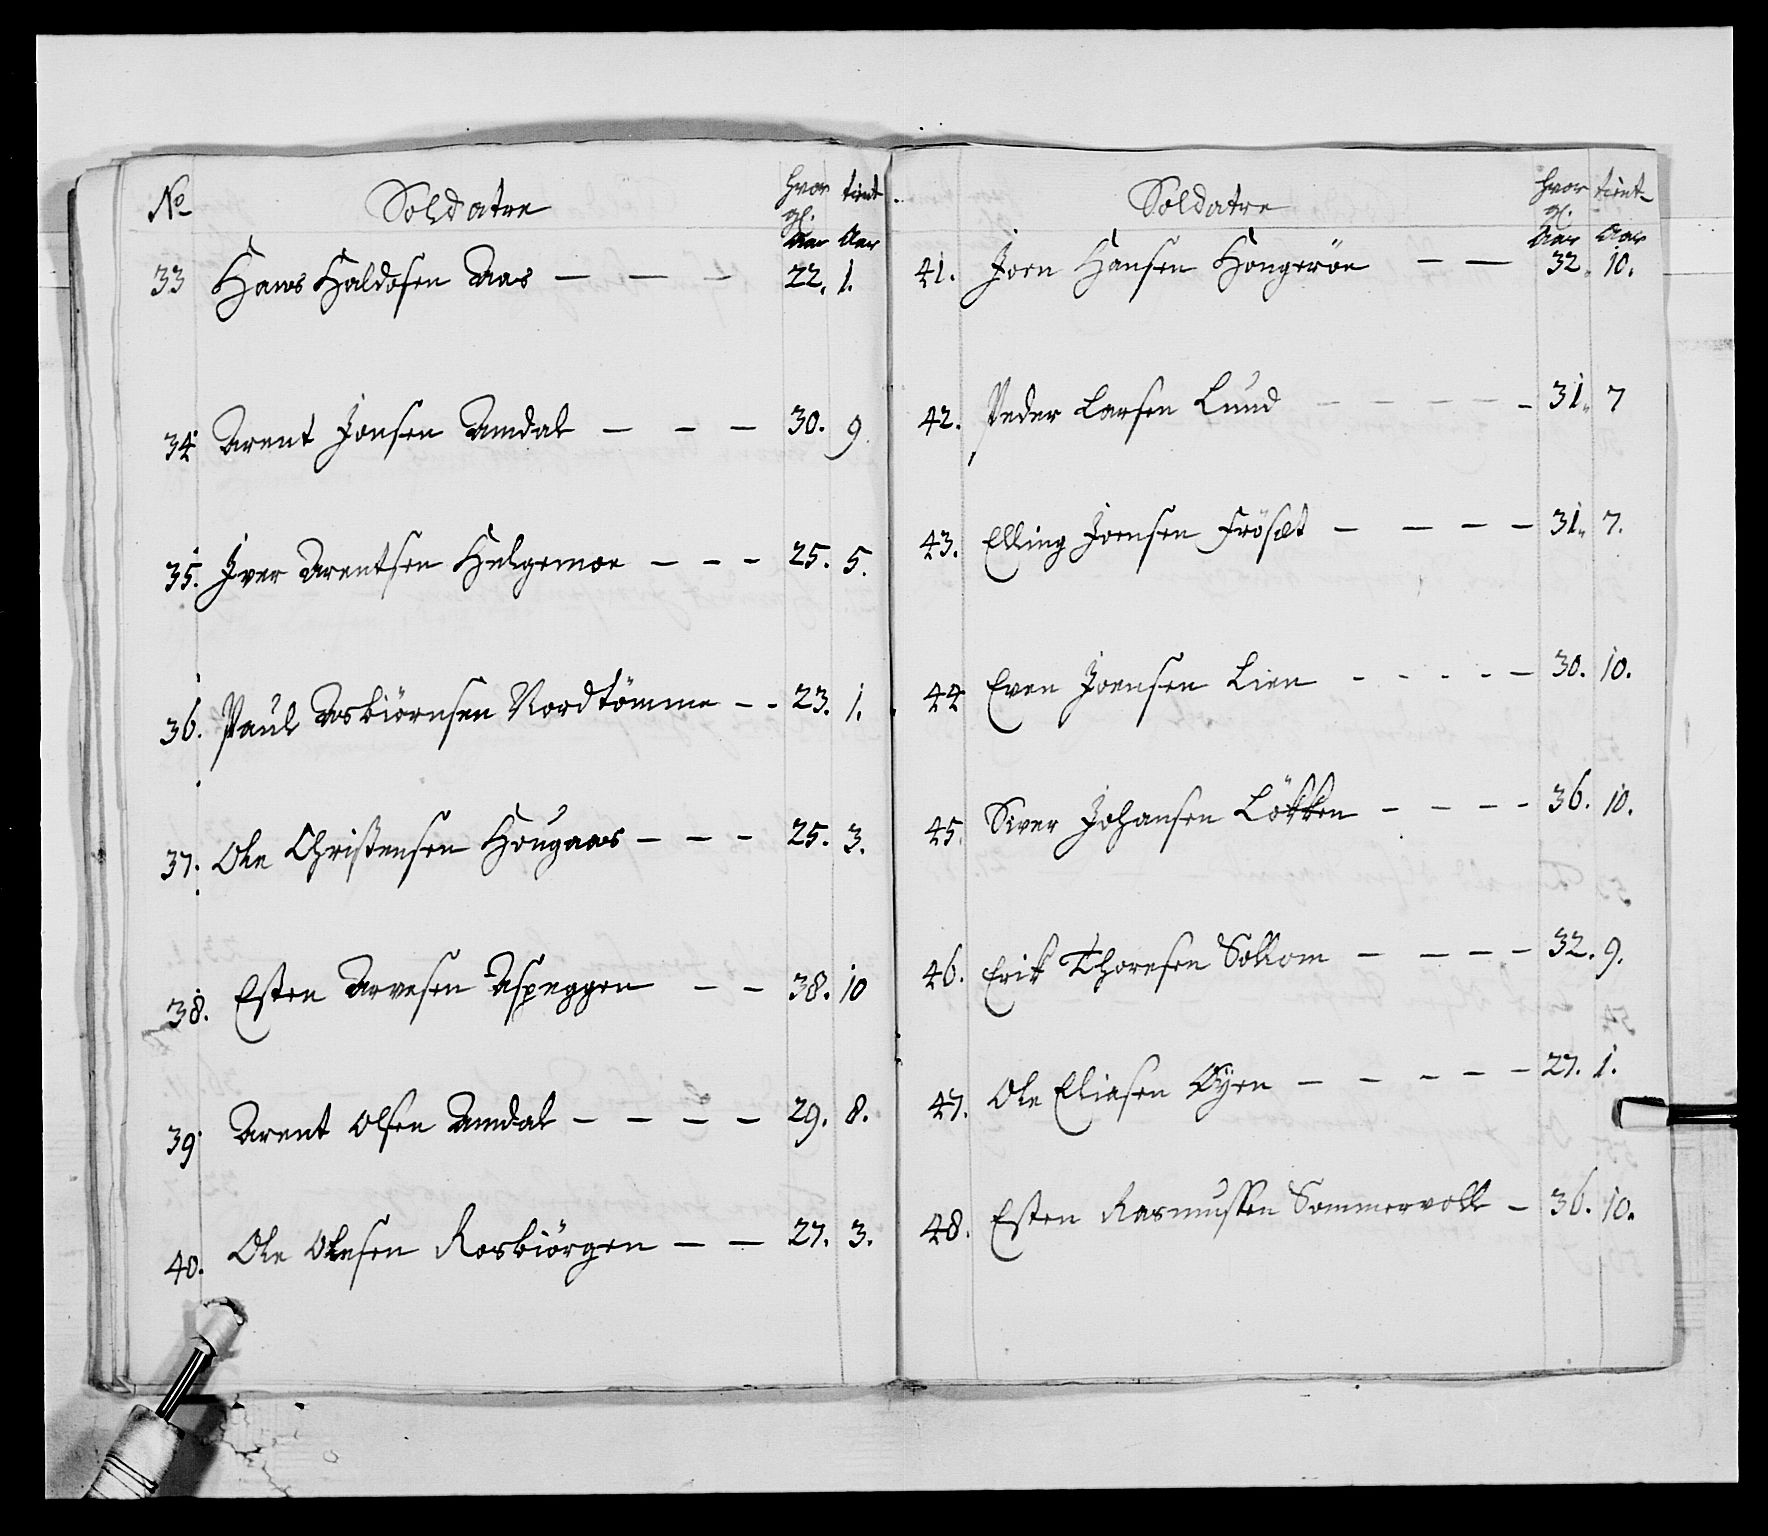 No Soldatre hvor gl. Aar tient Aar
33 Hans Haldosen Aas — — — 22. 1.
34 Arent Jonsen Amdal — — — 30. 9
35. Iver Arentsen Helgemoe — — — 25. 5.
36. Paul Asbiörnsen Nordtömme — — 23. 1.
37. Ole Christensen Hougaas — — — 25. 3.
38. Esten Arvesen Aspeggen — — 38. 10
39 Arent Olsen Amdal — — — — 29. 8.
40. Ole Olesen Rosbiörgen — — 27. 3.
Soldatre hvor gl. Aar tient Aar
41. Joen Hansen Hongeröe — — 32. 10.
42. Peder Larsen Lund — — — — — 31. 7
43. Elling Joensen Fröset — — — — 31. 7.
44 Even Joensen Lien — — — — — 30. 10.
45 Siver Johansen Lökken — — — — 36. 10.
46. Erik Thoresen Solkom — — — — 32. 9.
47. Ole Eliasen Öyen — — — — — 27. 1.
48. Esten Rasmussen Sommervold — 36. 10.